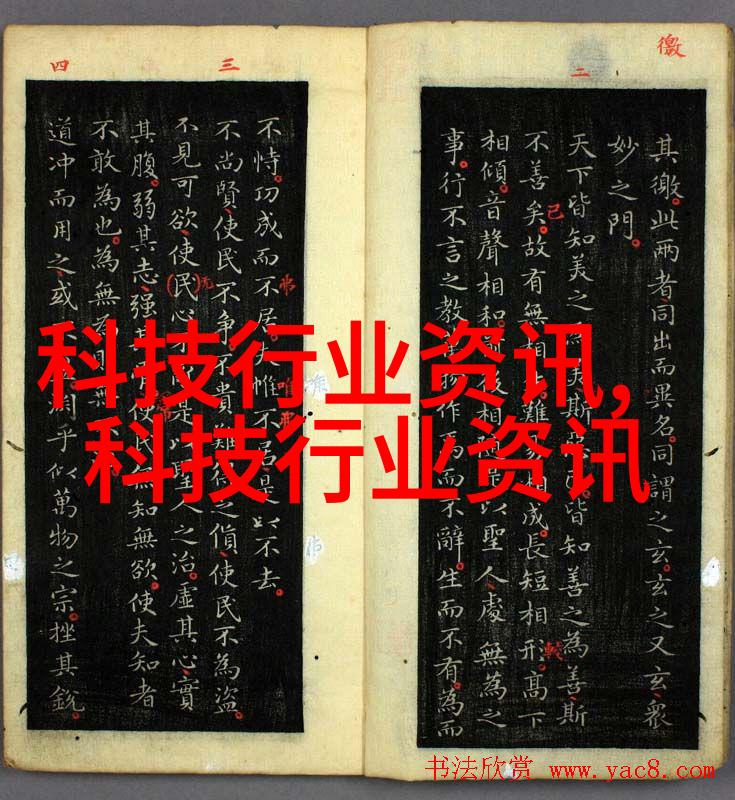 徼
二
其徼。此两者同出而異名。同謂之玄。玄之又玄。衆
妙之門。
天下皆知美之美斯皆知善之為善斯
不善矣。故有無相難相成。長短相形。高下
相傾。音聲相和。後相以聖人處無為之
事。行不言之教物作焉而不辭。生而不有。為而
已
較
三
四
不恃。功成而不居。夫惟不居是以不去。
不尚賢。使民不争。不貴之貨。使民不為盜。
不見可欲。使(民)心不是以聖人之治。虛其心。實
其腹。弱其志。强其使民無知無欲。使夫知者
不敢為也。為無為則無
道冲而用之。或淵乎似萬物之宗。挫其銳。
弗
唯弗
无
科技行业资讯,
科技行业资讯
书法欣赏 www.yac8.com